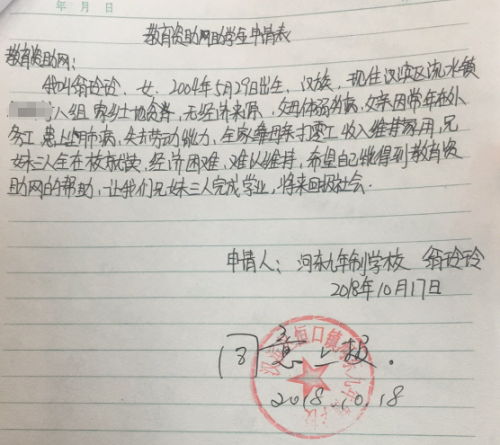 年 月 日
教育资助网助学金申请表
教育资助网:
我叫翁玲玲,女,2004年5月29日出生,汉族,现住汉滨区流水镇
八组 家乡土地贫瘠,无经济来源,父母体弱多病,父亲因常年在外
务工,患上肺病,失去劳动能力,全家靠母亲打零工收入维持家用,兄
妹三人全在校就读,经济困难,难以维持,希望自己能得到教育资
助网的帮助,让我们兄妹三人完成学业,将来回报社会.
申请人: 河东九年制学校 翁玲玲
2018年10月17日
同意上报.
恒口镇
2018.10.18